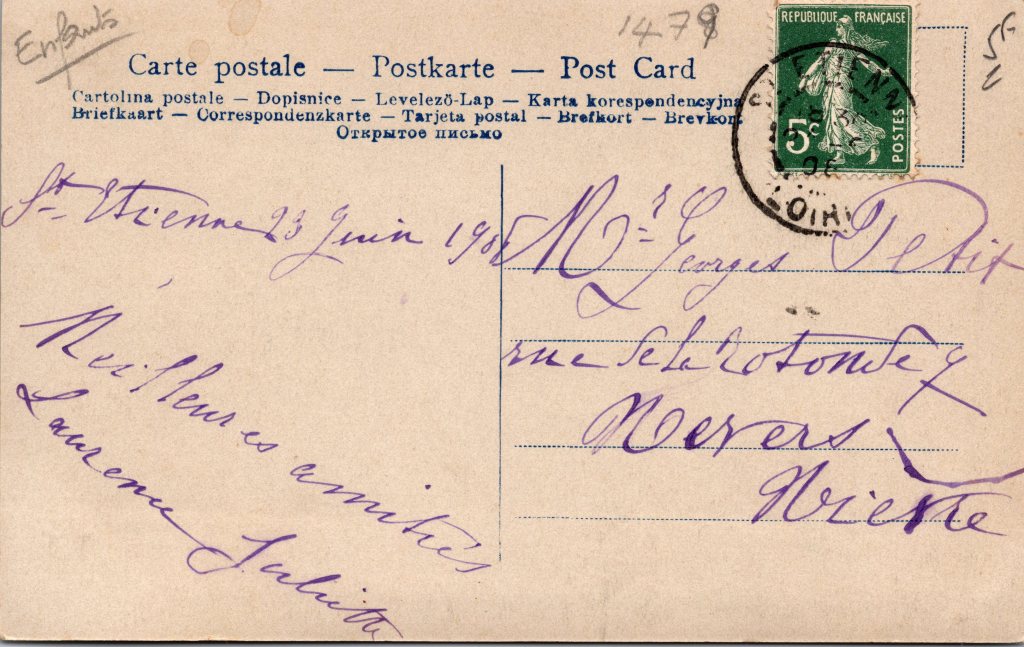 Enfants
1479
REPUBLIQUE FRANÇAISE
5c
POSTES
ST ETIENNE
LOIRE
Carte postale — Postkarte — Post Card
Cartolina postale — Dopisnice — Levelező-Lap — Karta korespondencyjna
Briefkaart — Correspondenzkarte — Tarjeta postal — Brefkort — Brevkort
Открытое письмо
St Etienne 23 Juin
Meilleures amitiés
Laurence Juliette
Mr Georges Petit
rue de la rotonde 7
Nevers
Nièvre